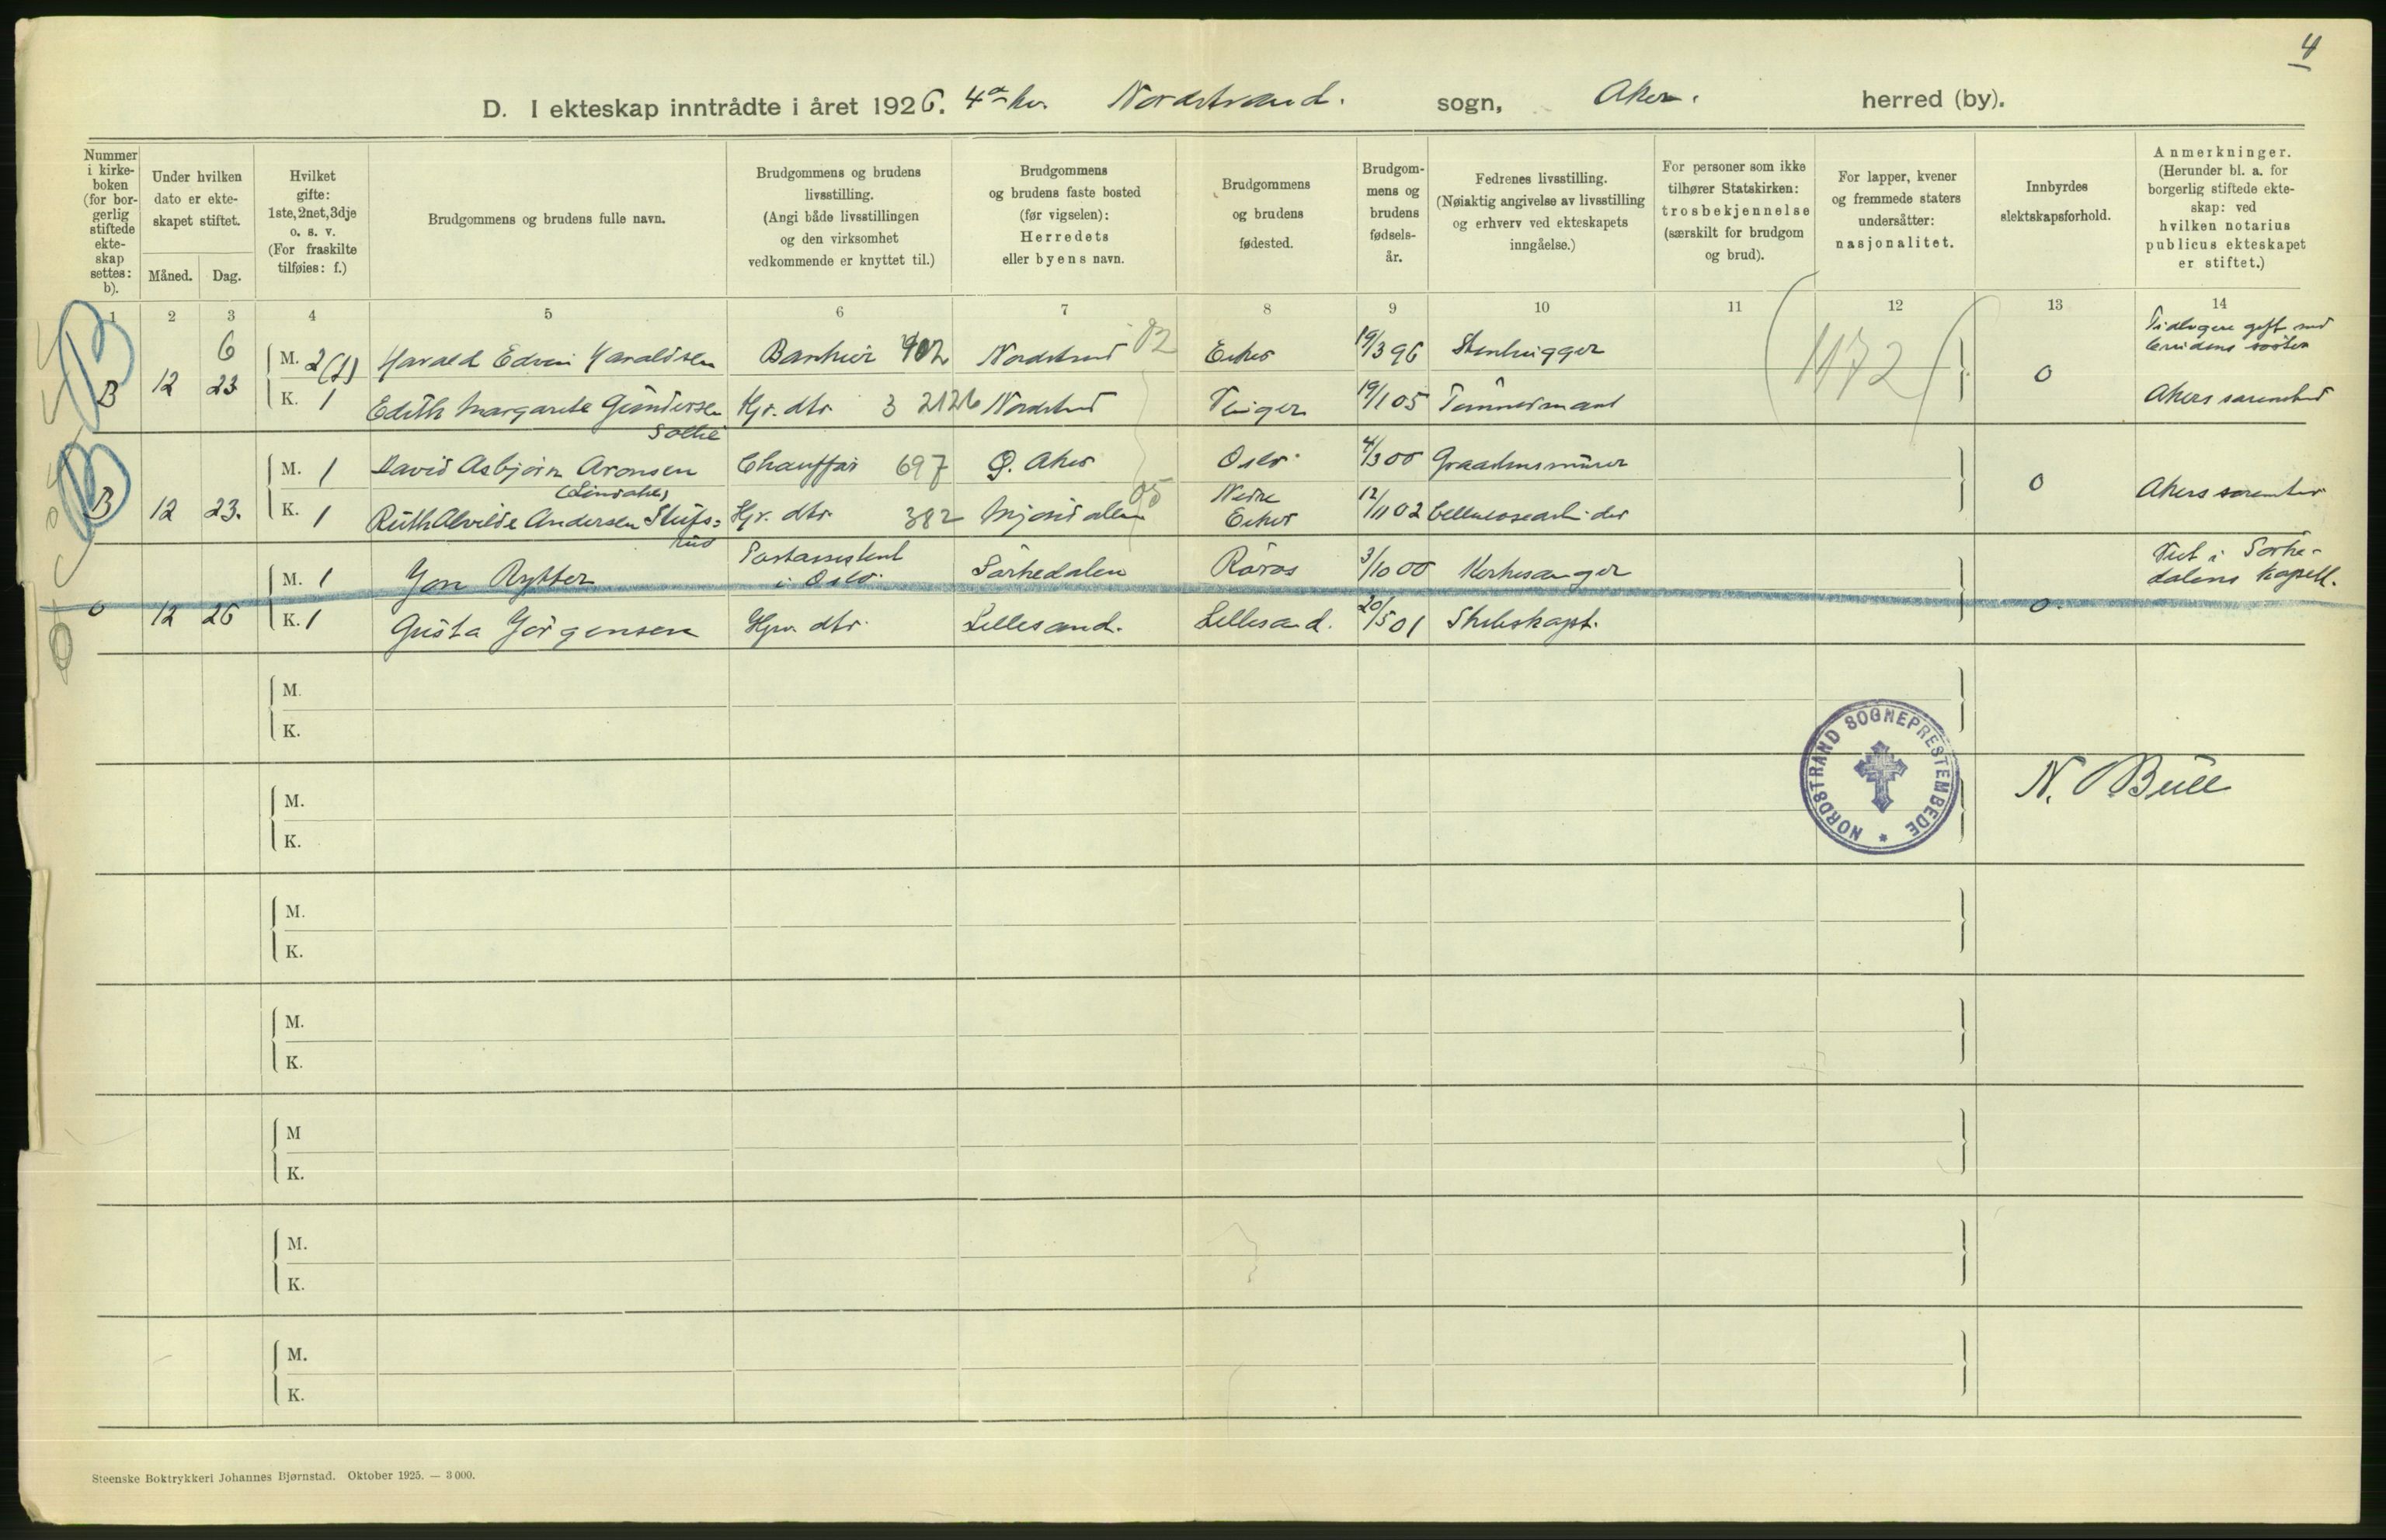 4
D. I ekteskap inntrådte i året 1926. 4de kv. Nordstrand. sogn, Aker. herred (by).
Nummer i kirke-boken (for bor-gerlig stiftede ekte-skap settes: b).
Under hvilken dato er ekte-skapet stiftet.
Måned. Dag.
Hvilket gifte: 1ste, 2net, 3dje o. s. v. (For fraskilte tilføies: f.)
Brudgommens og brudens fulle navn.
Brudgommens og brudens livsstilling. (Angi både livsstillingen og den virksomhet vedkommende er knyttet til.)
Brudgommens og brudens faste bosted (før vigselen): Herredets eller byens navn.
Brudgommens og brudens fødested.
Brudgom-mens og brudens fødsels-år.
Fedrenes livsstilling. (Nøiaktig angivelse av livsstilling og erhverv ved ekteskapets inngåelse.)
For personer som ikke tilhører Statskirken: trosbekjennelse (særskilt for brudgom og brud).
For lapper, kvener og fremmede staters undersåtter: nasjonalitet.
Innbyrdes slektskapsforhold.
Anmerkninger. (Herunder bl. a. for borgerlig stiftede ekte-skap: ved hvilken notarius publicus ekteskapet er stiftet.)
1 2 3 4 5 6 7 8 9 10 11 12 13 14
6 M. 2(f) Harald Edvin Haraldsen 902 Nordstrand 02 Eker 19/3 96 Stenhugger 1172 Tidligere gift med brudens søster
B 12 23 K. 1 Edith Margarete Gundersen Hjv. dtr. 3 2126 Nordstrand Vinger 19/1 05 Tømmermand 0 Akers sorenskr
Solli
M. 1 David Asbjørn Aronsen Chauffør 697 Ø. Aker Oslo 4/3 00 Graastensmurer
(Lindahl)
B 12 23. K. 1 Ruth Alvilde Andersen Stufs= Hjv. dtr. 382 Mjøndalen 05 Nedre Eiker 12/11 02 Cellulosearbeider 0 Akers sorenskr
rud
M. 1 Jon Rytter Postassistent i Oslo. Sørkedalen Røros 3/10 00 Kirkesanger Viet i Sørke-
dalens kapell.
0 12 26 K. 1 Gusta Jørgensen Hjv. dtr. Lillesand. Lillesand. 20/5 01 Skibskapt. 0
M.
K.
NORDSTRAND SOGNEPRESTEMBEDE *
N. Bull
M.
K.
M.
K.
M.
K.
M
K.
M.
K.
M.
K.
Steenske Boktrykkeri Johannes Bjørnstad. Oktober 1925. — 3 000.